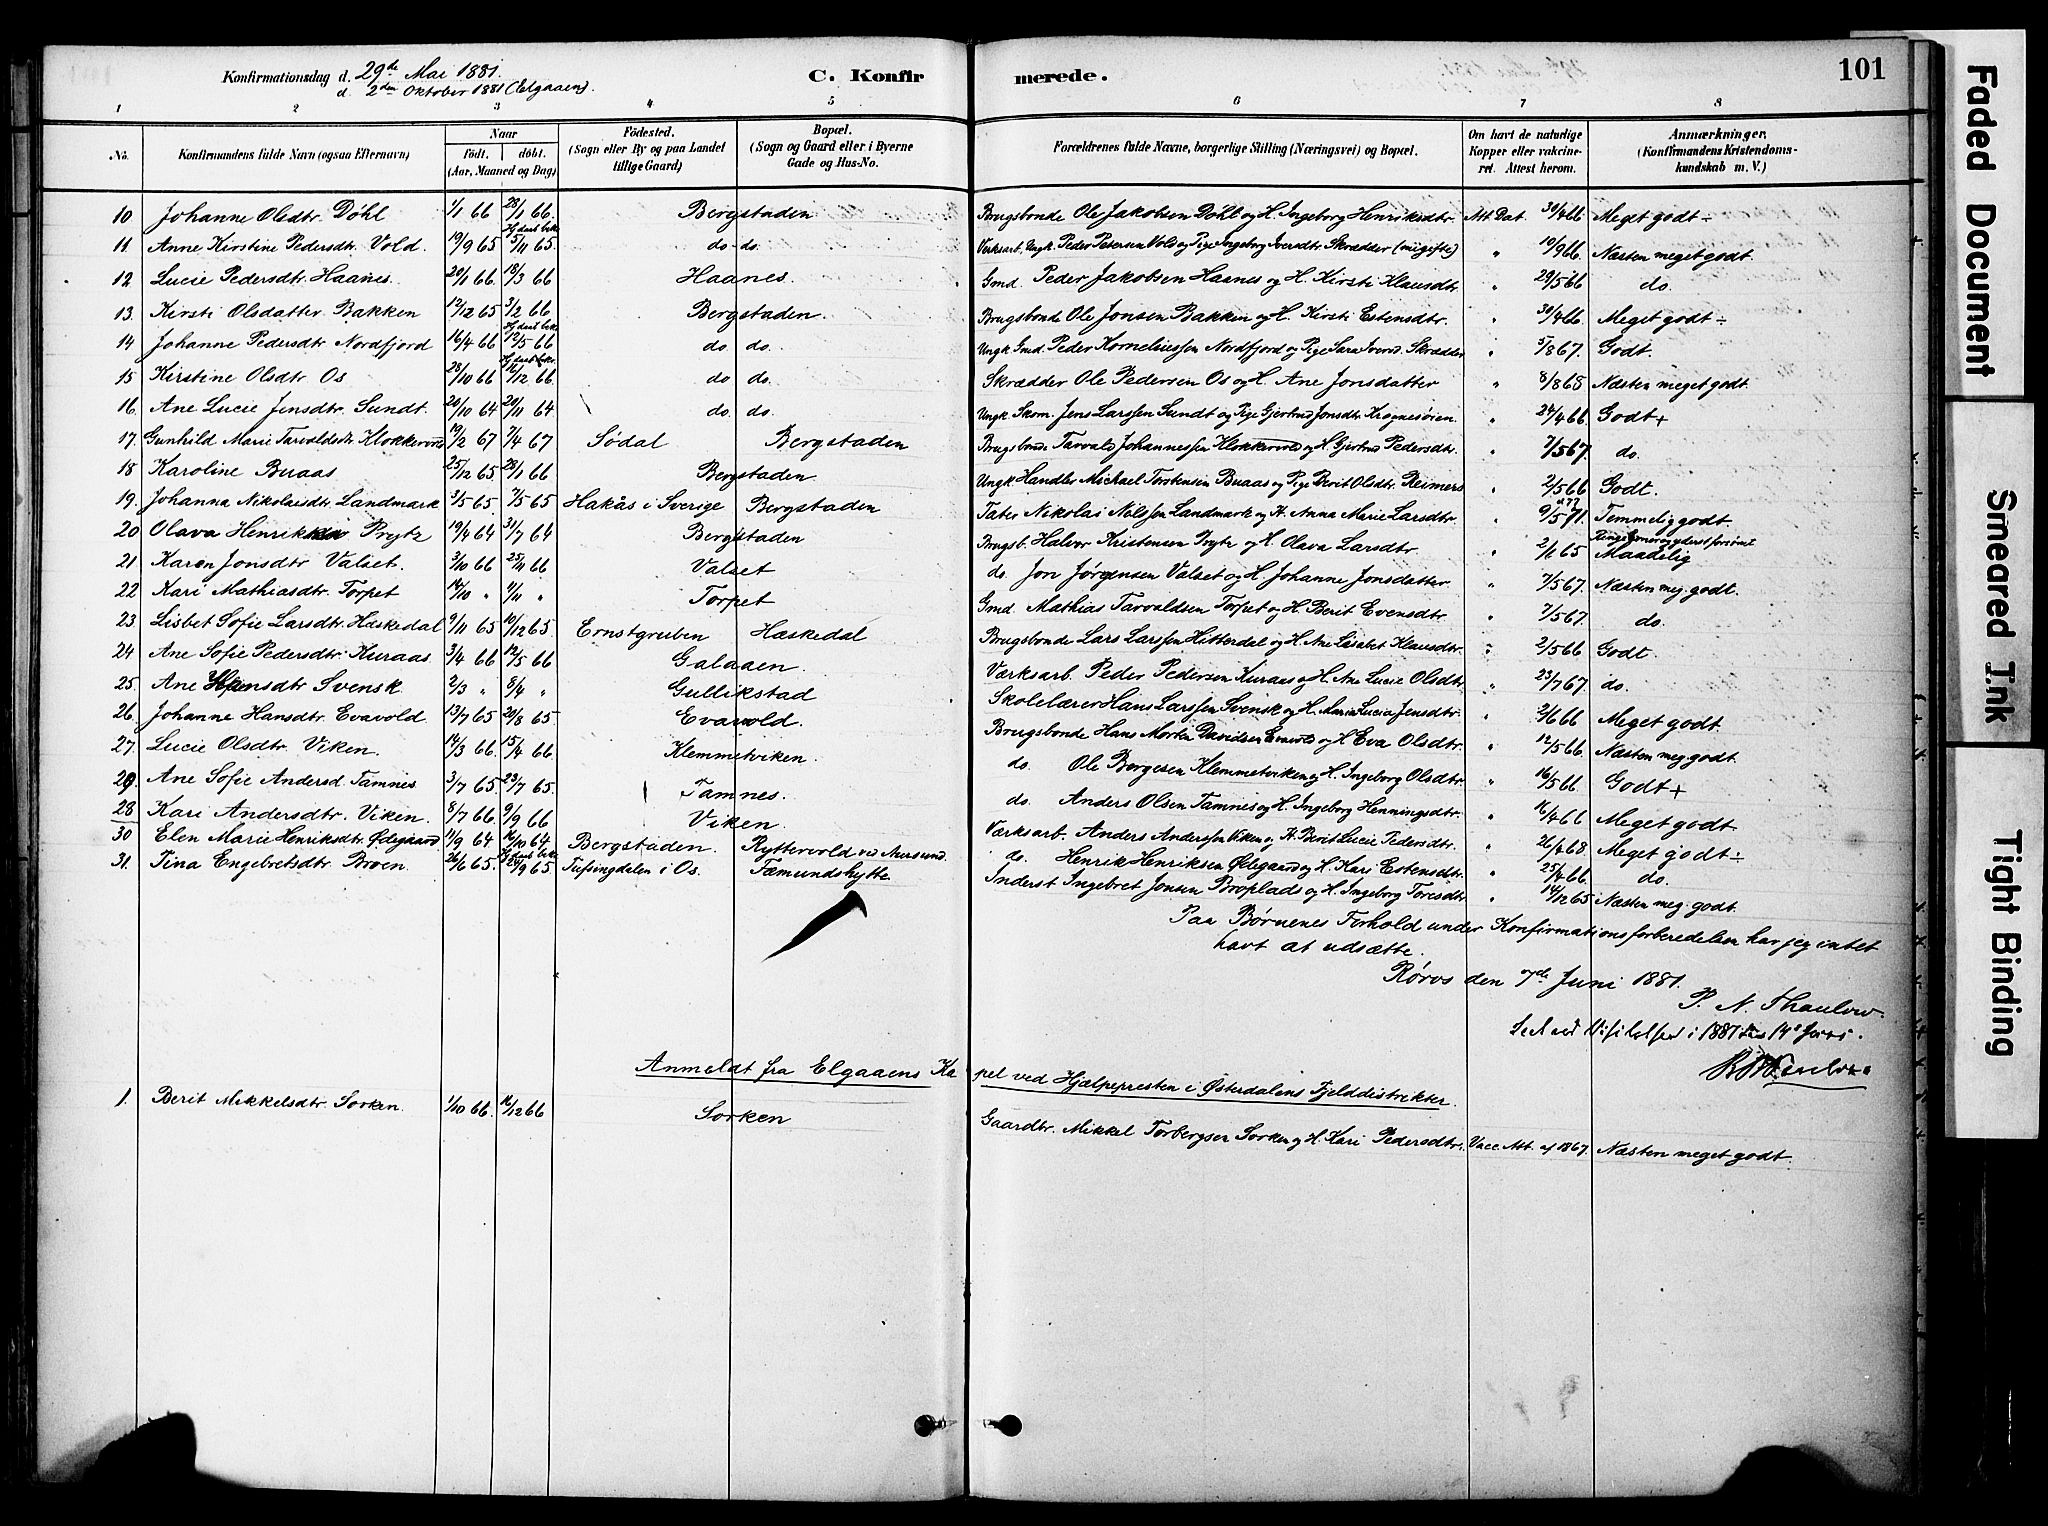 Konfirmationsdag d. 29de Mai 1881. C. Konfirmerede. 101
d. 2den Oktober 1881 (Elgaaen).
1 2 3 4 5 6 7 8
No. Konfirmandens fulde Navn (ogsaa Efternavn) Naar födt. döbt. (Aar, Maaned og Dag) Födested. (Sogn eller By og paa Landet tillige Gaard) Bopæl. (Sogn og Gaard eller i Byerne Gade og Hus-No. Forældrenes fulde Navne, borgerlige Stilling (Næringsvei) og Bopæl. Om havt de naturlige Kopper eller vakcineret. Attest herom. Anmærkninger. (Konfirmandens Kristendomskundskab m. V.)
10 Johanne Olsdtr. Döhl 1/1 66 28/1 66. Bergstaden Brugsbonde Ole Jakobsen Döhl og H. Ingeborg Henriksdtr. Att. Dat. 30/4 66 Meget godt ÷
11. Anne Kirstine Pedersdtr. Vold. 19/9 65 5/11 65. do do. Verksarb. Ungk. Peder Petersen Vold og Pige Ingeborg Iversdtr. Skrædder (nu gifte) " 10/9 66. Næsten meget godt.
12 Lucie Pedersdtr. Haanes. 20/1 66 18/3 66 Haanes. Gmd. Peder Jakobsen Haanes og H. Kirsti Klausdtr. " 29/5 66 do.
13. Kirsti Olsdatter Bakken 12/12 65 3/2 66 Bergstaden. Brugsbonde Ole Jonsen Bakken og H. Kirsti Estensdtr. " 30/4 66. Meget godt ÷
14 Johanne Pedersdtr Nordfjord 16/4 66 12/5 66 do do. Ungk. Gmd. Peder Korneliussen Nordfjord og Pige Sara Iversd. Skrædder " 5/8 67. Godt.
15 Kirstine Olsdtr. Os 28/10 66 16/12 66. do do. Skrædder Ole Pedersen Os og H. Ane Jonsdatter " 8/8 68 Næsten meget godt.
16. Ane Lucie Jensdtr. Sundt. 20/10 64 20/11 64 do. do. Ungk. Skom. Jens Larssen Sundt og Pige Gjertrud Jonsdtr. " 24/4 66. Godt +
17. Gunhild Marie Tarvaldsdtr. Klokkervold 19/2 67 7/4 67 Södal Bergstaden Brugsbonde Tarvald Johannessen Klokkervold og H. Gjertrud Pedersdtr. " 7/5 67. do.
18 Karoline Buaas 25/12 65. 28/1 66 Bergstaden Ungk. Handler Michael Torstensen Buaas og Pige Berit Olsdtr. Reimers " 2/5 66 Godt.
19. Johanna Nikolaisdtr. Landmark 3/5 65. 7/5 65 Hakås i Sverige Bergstaden Tater Nikolai Nilssen Landmark og H. Anna Marie Larsdtr. " 9/5 71. Temmelig godt.
20 Olava Prytz 19/4 64 31/7 64 Bergstaden Brugsb. Halvor Kristensen Prytz og H. Olava Larsdtr " 2/1 65 Maadelig
21 Karen Jonsdtr Valset. 3/10 66 25/11 66 Valset do. Jon Jørgensen Valset og H. Johanne Jonsdatter " 7/5 67. Næsten meg. godt.
22 Kari Mathiasdtr. Torpet 14/10 " 4/11 " Torpet Gmd. Mathias Tarvaldsen Torpet og H. Berit Evensdtr. " 7/5 67 do.
23 Lisbet Sofie Larsdtr. Hæskedal 9/11 65 10/12 65. Ernstgruben Hæskedal Brugsbonde Lars Larssen Hitterdal og H. Ane Lisabet Klausdtr. " 2/5 66 Godt.
24 Ane Sofie Pedersdtr. Kuraas 3/4 66 12/5 66 Galaaen. Værksarb. Peder Pedersen Kuraas og H. Ane Lucie Olsdtr. " 23/7 67. do.
25. Ane Hansdtr Svensk. 2/3 " 8/4 " Gullikstad Skolelærer Hans Larssen Svensk og H. Maria Lucia Jensdtr. " 2/6 66 Meget godt.
26. Johanne Hansdtr. Evavold 13/7 65 20/8 65 Evavold. Brugsbonde Hans Morten Davidsen Evavold og H. Eva Olsdtr. " 12/5 66. Næsten meg. godt.
27. Lucie Olsdtr. Viken. 14/3 66. 15/4 66. Klemmetviken. do. Ole Borgesen Klemmetviken og H. Ingeborg Olsdtr. " 16/5 66. Godt +
29. Ane Sofie Andersd. Tamnes 3/7 65. 23/7 65. Tamnes. do. Anders Olsen Tamnes og H. Ingeborg Henningsdtr. " 16/4 66 Meget godt.
28 Kari Andersdtr. Viken. 8/7 66. 9/9 66 Viken. Værksarb. Anders Anderssen Viken og H. Berit Lucie Pedersdtr. " 26/4 68. Meget godt ÷
30 Elen Marie Henriksdtr. Ødegaard 11/9 64 16/10 64. Bergstaden. Ryttervold ved Aursund. do. Henrik Henriksen Ødegaard og H. Kari Estensdtr. " 25/4 66. do.
31. Tina Engebretsdtr. Broen. 26/6 65. 24/9 65. Tufsingdalen i Os. Fæmundshytte. Inderst Ingebret Jonsen Broplads og H. Ingeborg Toresdtr. " 14/12 65 Næsten meg. godt.
Paa Børnenes Forhold under Konfirmationsforberedelsen har jeg intet
havt at udsætte.
Røros den 7de Juni 1881.
P. N. Thaulow.
Seet ved Visitatsen i 1881 den 14de Juni.
Anmeldt fra Elgaaens Kapel ved Hjælpepresten i Østerdalens Fjelddistrikter.
1. Berit Mikkelsdtr. Sorken. 1/10 66. 16/12 66 Sorken Gaardbr. Mikkel Torbergsen Sorken og H. Kari Pedersdtr. Vacc. Att. af 1867. Næsten meget godt.
Faded Document
Smeared Ink
Tight Binding